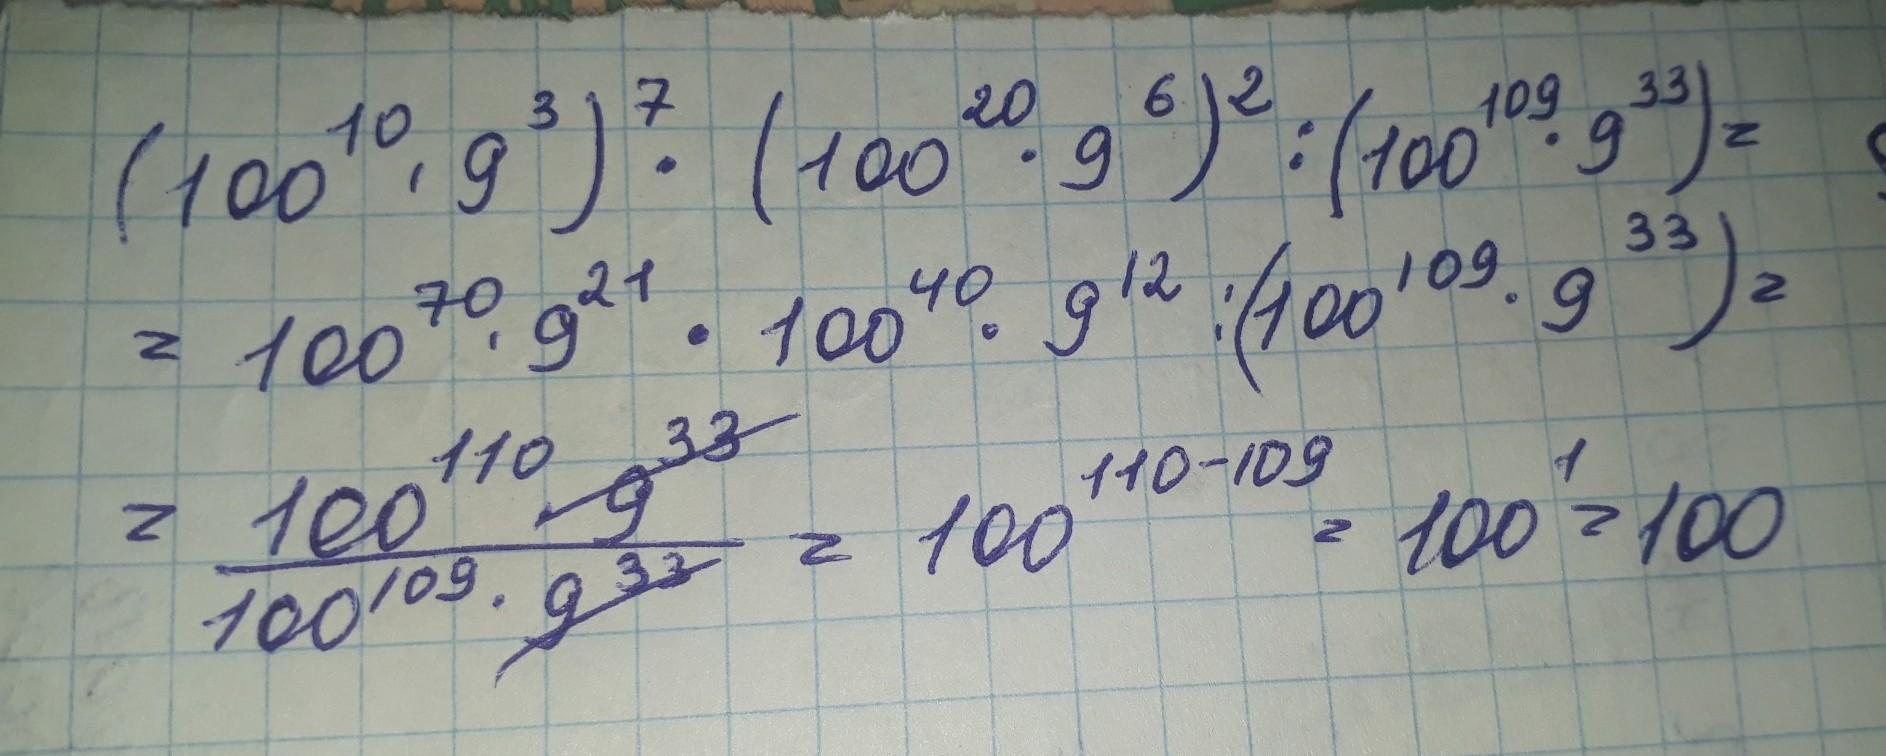 (100^10 · 9^3)^7 · (100^20 · 9^6)^2 : (100^109 · 9^33) =
= 100^70 · 9^21 · 100^40 · 9^12 : (100^109 · 9^33) =
= (100^110 · 9^33) / (100^109 · 9^33) = 100^(110-109) = 100^1 = 100